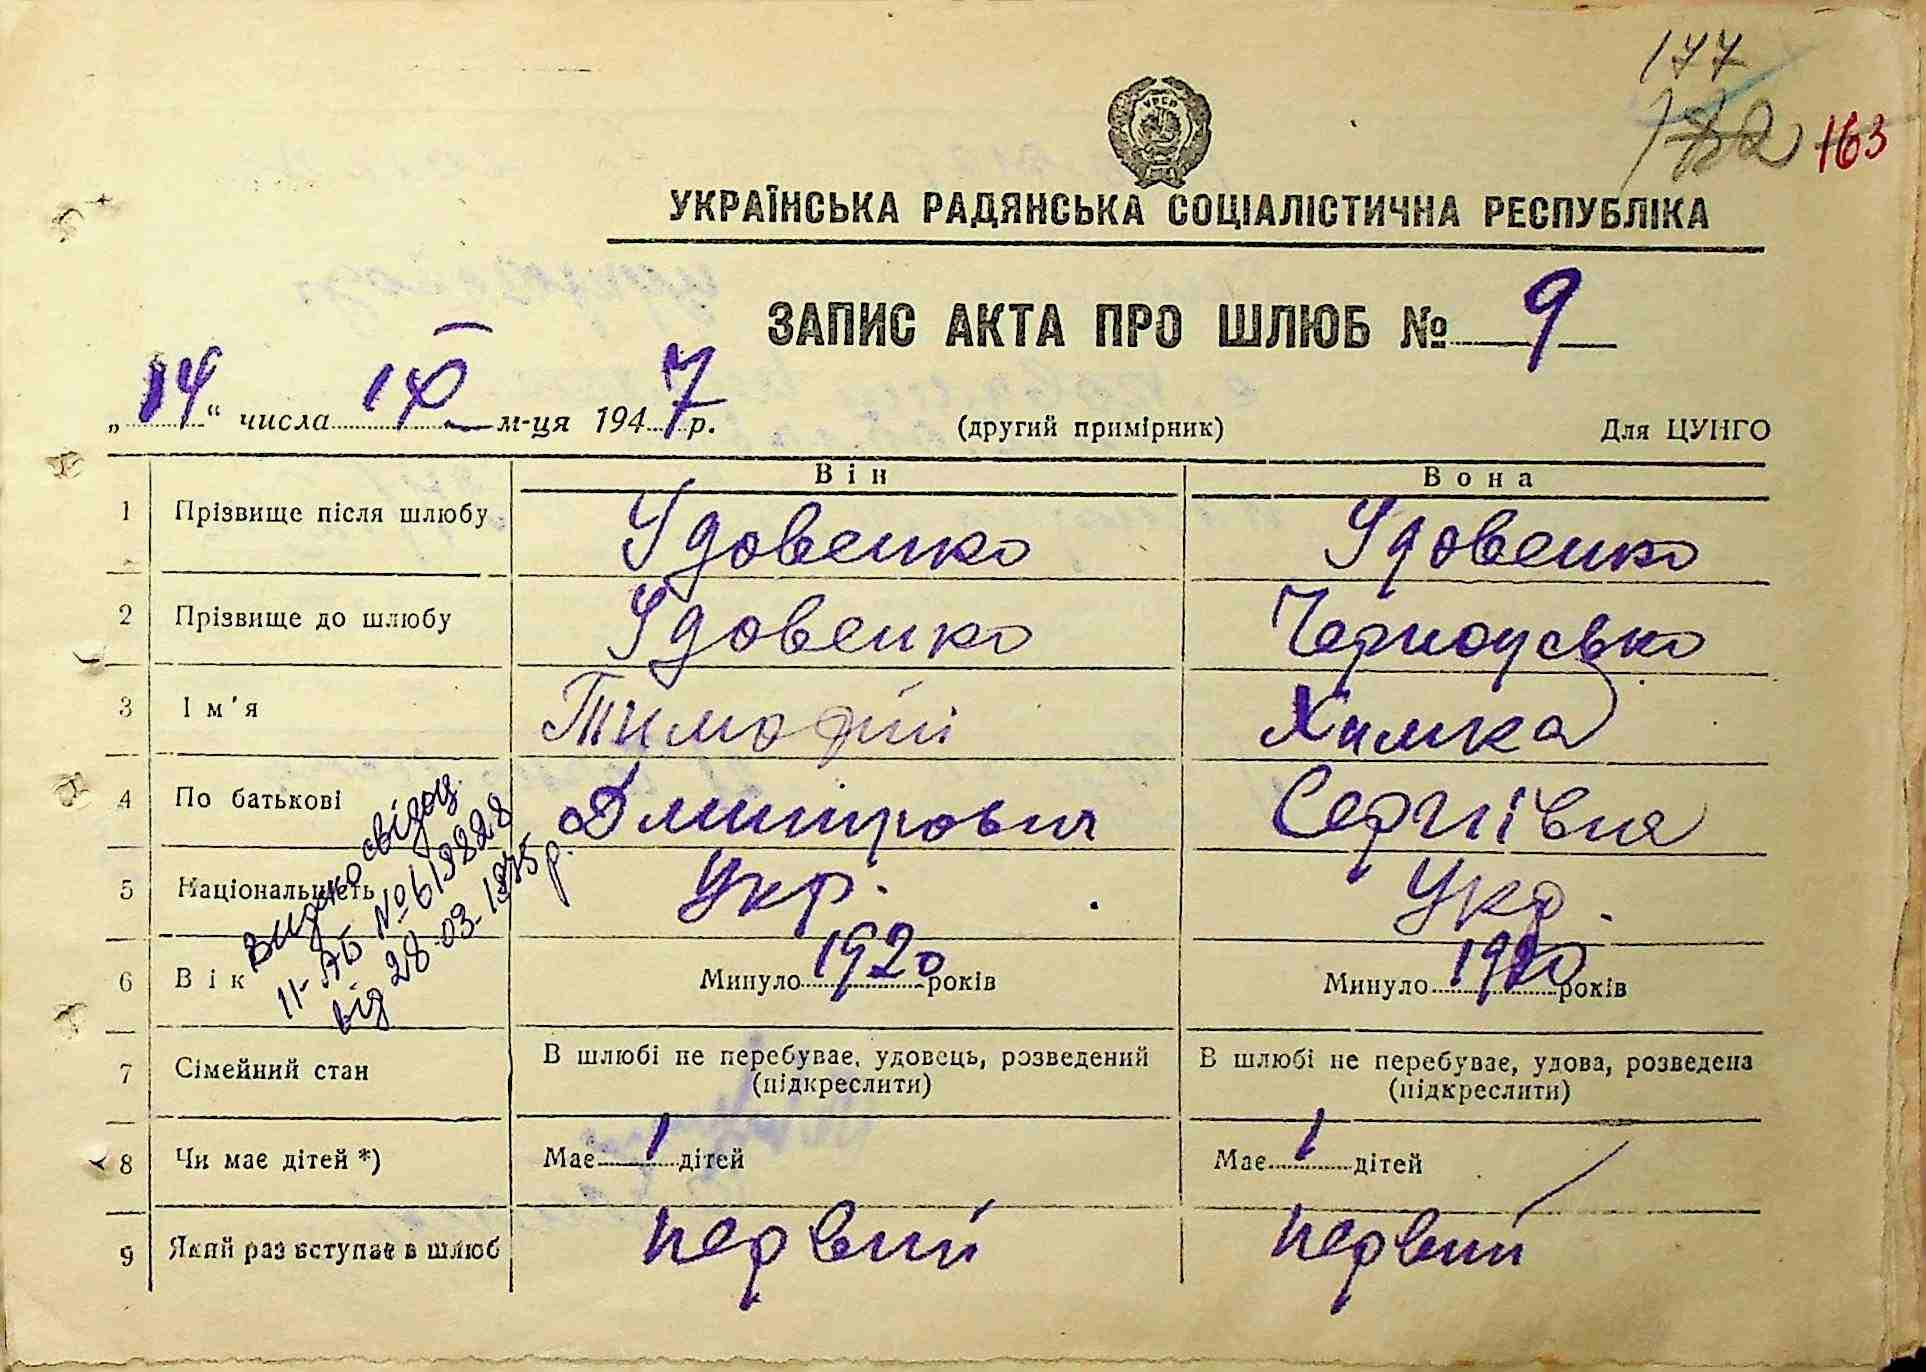 177
182 163
УРСР
УКРАЇНСЬКА РАДЯНСЬКА СОЦІАЛІСТИЧНА РЕСПУБЛІКА
ЗАПИС АКТА ПРО ШЛЮБ № 9
„14“ числа IX м-ця 1947 р. (другий примірник) Для ЦУНГО
Він Вона
1 Прізвище після шлюбу Удовенко Удовенко
2 Прізвище до шлюбу Удовенко Черноусько
3 Ім'я Тимофій Химка
4 По батькові Дмитрович Сергіївна
5 Національність Укр. Укр.
6 Вік Минуло 1920 років Минуло 1920 років
видано свідоц.
II-АБ № 619828
від 28-03-1975 р.
7 Сімейний стан В шлюбі не перебуває, удовець, розведений В шлюбі не перебуває, удова, розведена
(підкреслити) (підкреслити)
8 Чи має дітей *) Має 1 дітей Має 1 дітей
9 Який раз вступає в шлюб первий первий